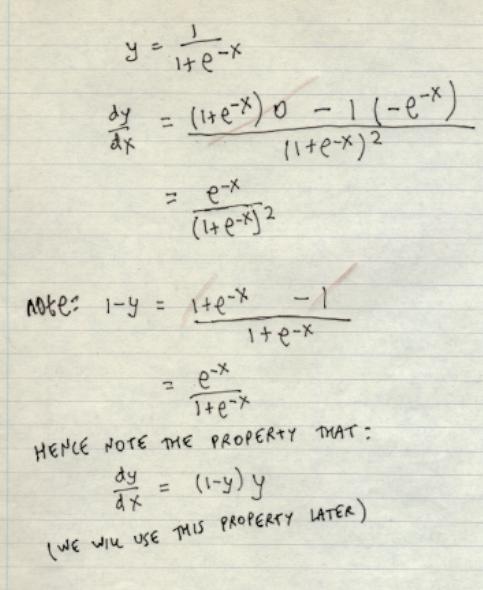 y = 1 / (1+e^-x)
dy/dx = ((1+e^-x) 0 - 1 (-e^-x)) / (1+e^-x)^2
= e^-x / (1+e^-x)^2
note: 1-y = (1+e^-x - 1) / (1+e^-x)
= e^-x / (1+e^-x)
HENCE NOTE THE PROPERTY THAT:
dy/dx = (1-y) y
(WE WILL USE THIS PROPERTY LATER)